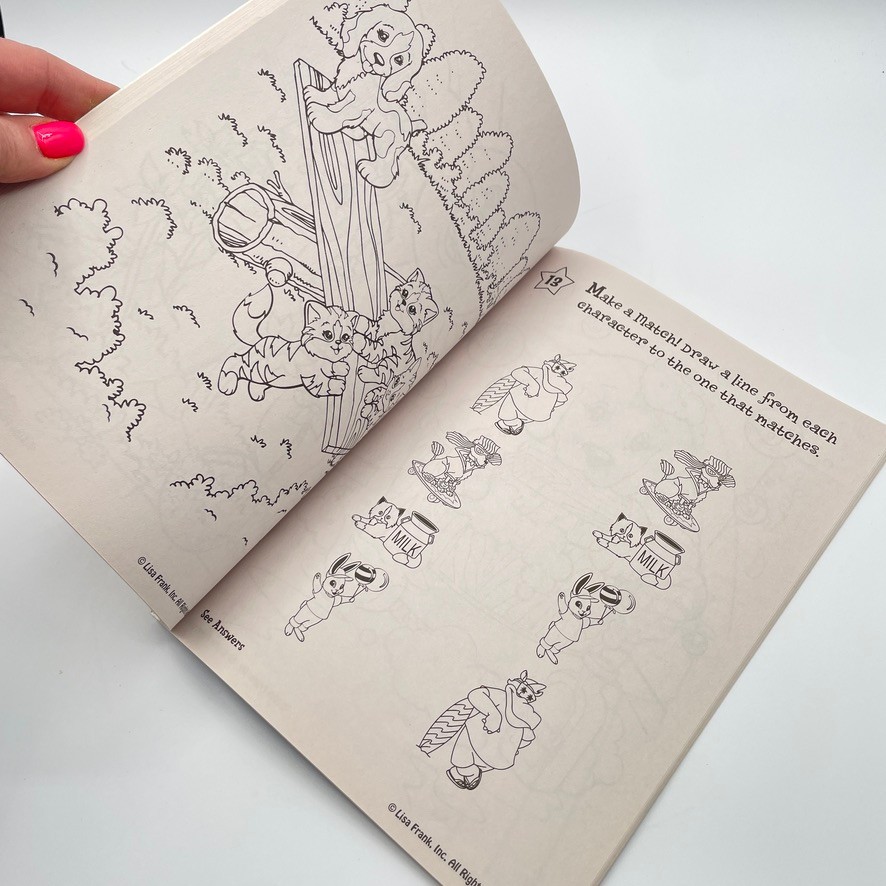 © Lisa Frank, Inc. All
See Answers
13
Make a Match! Draw a line from each
character to the one that matches.
MILK
MILK
© Lisa Frank, Inc. All